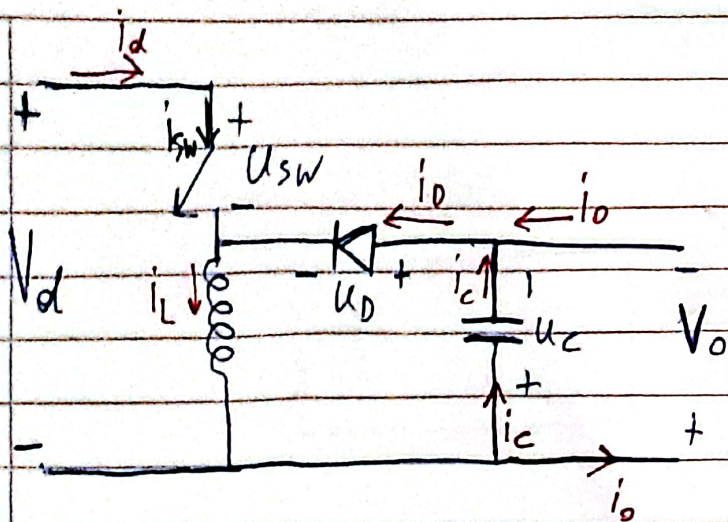 id
+
isw
+
usw
-
iD
io
Vd
iL
-
uD
+
ic
-
uc
-
Vo
+
ic
+
-
io